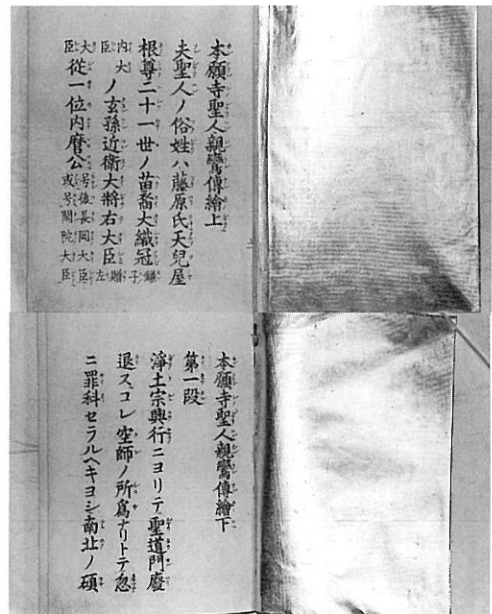 本願寺聖人親鸞傳繪上
夫聖人ノ俗姓ハ藤原氏天兒屋
根尊二十一世ノ苗裔大織冠鎌子
内大臣ノ玄孫近衛大將右大臣贈左
大臣從一位内麿公号後長岡大臣或号閑院大臣
本願寺聖人親鸞傳繪下
第一段
淨土宗興行ニヨリテ聖道門廢
退スコレ空師ノ所爲ナリトテ忽
ニ罪科セラルヘキヨシ南北ノ碩